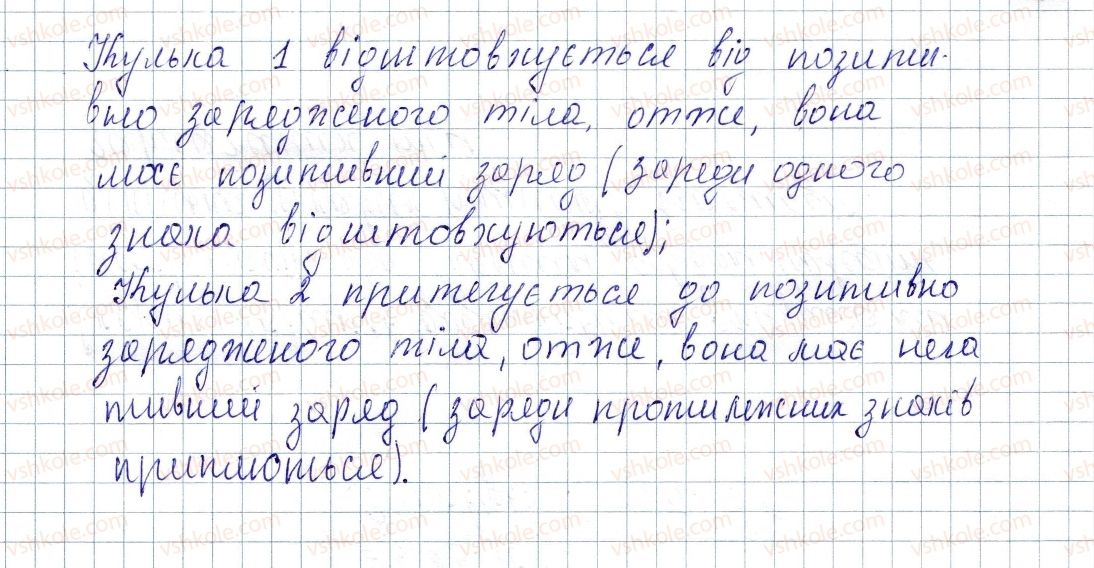 Кулька 1 відштовхується від позити-
вно зарядженого тіла, отже, вона
має позитивний заряд (заряди одного
знака відштовхуються);
Кулька 2 притягується до позитивно
зарядженого тіла, отже, вона має нега
тивний заряд (заряди протилежних знаків
).